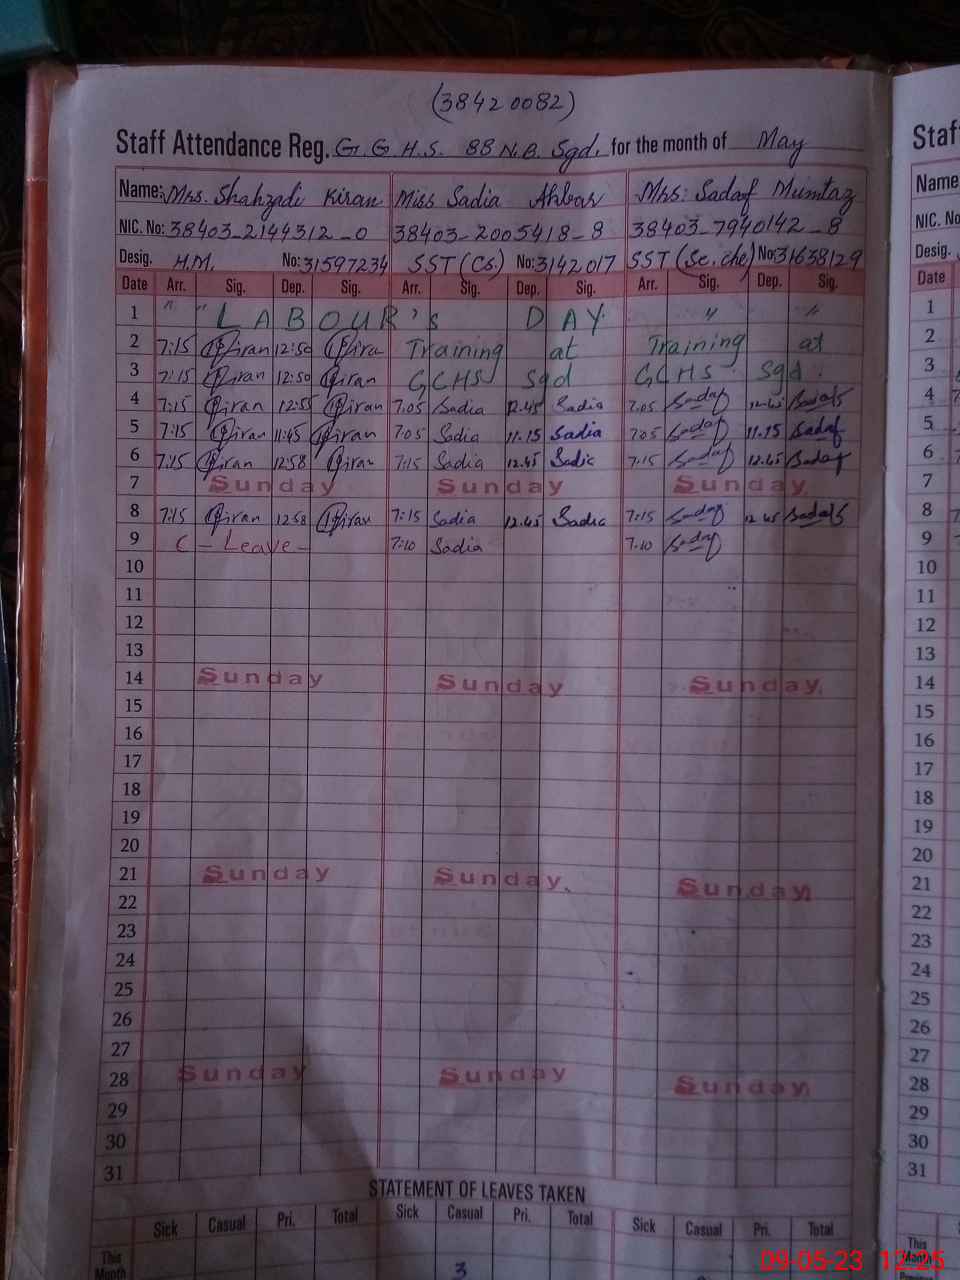 (38420082)
Staff Attendance Reg. G.G.H.S. 88 N.B. Sgd. for the month of May
Name: Mrs. Shahzadi Kiran Miss Sadia Akbar Mrs: Sadaf Mumtaz
NIC. No: 38403_2144312_0 38403_2005418_8 38403_7940142_8
Desig. H.M. No: 31597234 SST (Cs) No: 3142017 SST (Sc.che) No: 31638129
Date Arr. Sig. Dep. Sig. Arr. Sig. Dep. Sig. Arr. Sig. Dep. Sig.
1 " " LABOUR's DAY " "
2 7:15 Kiran 12:50 Kiran Training at Training at
3 7:15 Kiran 12:50 Kiran GCHS Sgd GCHS Sgd.
4 7:15 Kiran 12:55 Kiran 7.05 Sadia 12.45 Sadia 7.05 Sadaf 12.45 Sadaf
5 7:15 Kiran 11:45 Kiran 7.05 Sadia 11.15 Sadia 7.05 Sadaf 11.15 Sadaf
6 7:15 Kiran 12:58 Kiran 7:15 Sadia 12.45 Sadia 7.15 Sadaf 12.45 Sadaf
7 Sunday Sunday Sunday
8 7:15 Kiran 12:58 Kiran 7:15 Sadia 12.45 Sadia 7:15 Sadaf 12.45 Sadaf
9 C - Leave - 7:10 Sadia 7.10 Sadaf
10
11
12
13
14 Sunday Sunday Sunday
15
16
17
18
19
20
21 Sunday Sunday Sunday
22
23
24
25
26
27
28 Sunday Sunday Sunday
29
30
31
STATEMENT OF LEAVES TAKEN
Sick Casual Pri. Total Sick Casual Pri. Total Sick Casual Pri. Total
This Month
3
Staf
Name
NIC. No
Desig.
Date
1
2
3
4
5
6
7
8
9
10
11
12
13
14
15
16
17
18
19
20
21
22
23
24
25
26
27
28
29
30
31
This Month
09-05-23 12:25